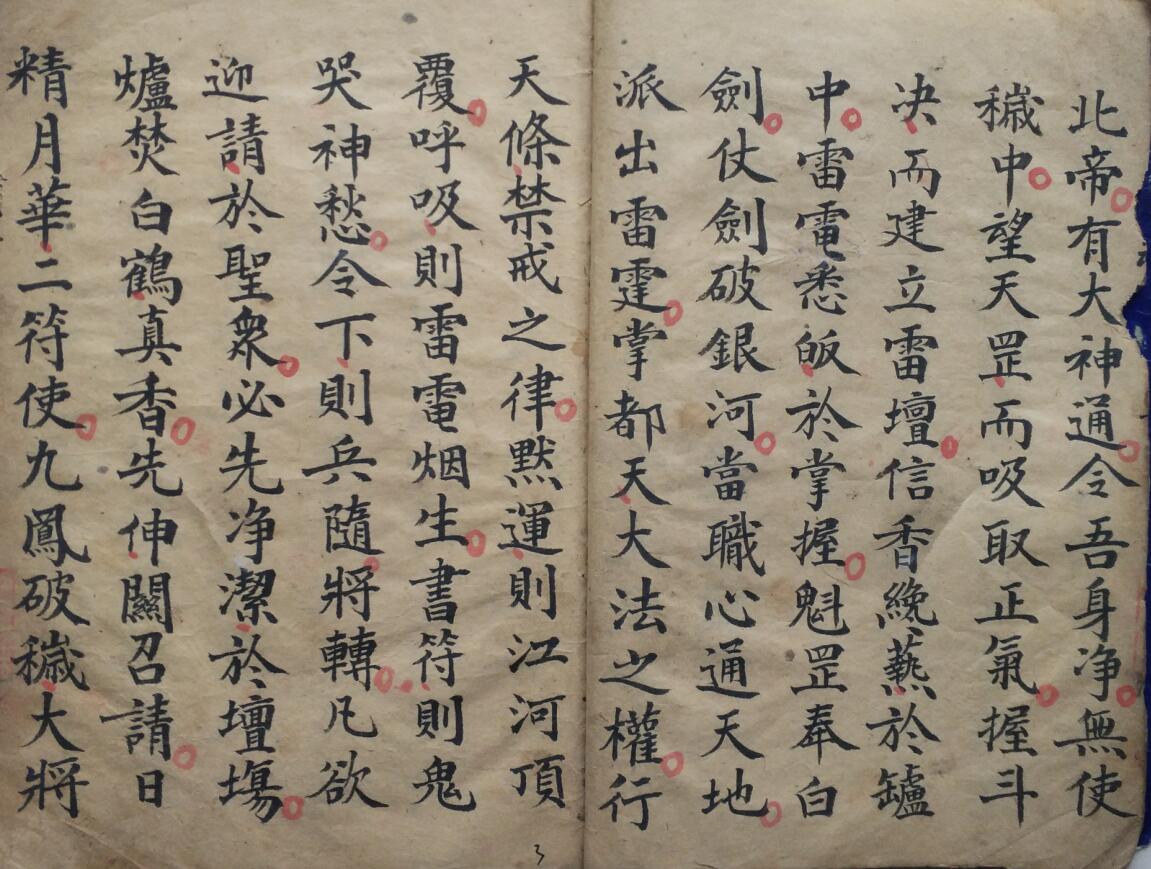 北帝有大神通令吾身净無使
穢中望天罡而吸取正氣握斗
决而建立雷壇信香纔爇於鑪
中雷電悉皈於掌握魁罡奉白
劍仗劍破銀河當職心通天地
派出雷霆掌都天大法之權行
天條禁戒之律默運則江河頂
覆呼吸則雷電烟生書符則鬼
哭神愁令下則兵隨將轉凡欲
迎請於聖衆必先净潔於壇塲
爐焚白鶴真香先伸關召請日
精月華二符使九鳳破穢大將
3